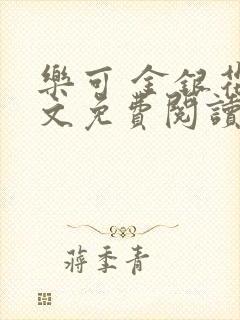 樂可 金銀花
文免費閱讀
蔣季青